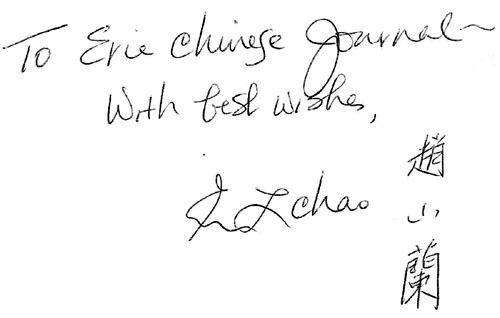 To Erie Chinese Journal –
With best wishes,
L Chao
趙小蘭